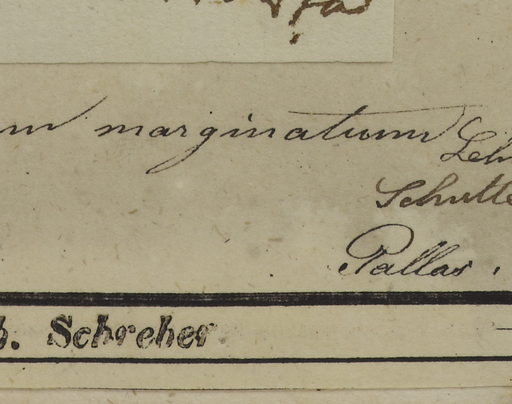 marginatum Leh
Schulte
Pallas.
b. Schreber